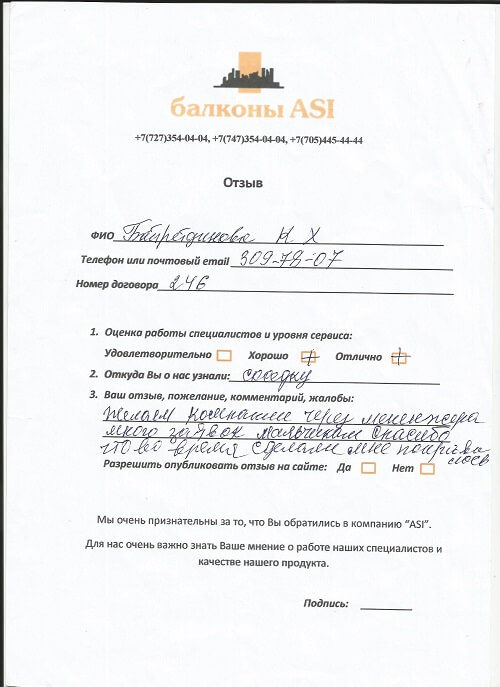 балконы ASI
+7(727)354-04-04, +7(747)354-04-04, +7(705)445-44-44
Отзыв
ФИО К Х
Телефон или почтовый email 309-78-07
Номер договора 246
1. Оценка работы специалистов и уровня сервиса:
Удовлетворительно Хорошо Отлично
2. Откуда Вы о нас узнали: соседку
3. Ваш отзыв, пожелание, комментарий, жалобы:
Желаем компании через менеджера
много заявок мальчикам спасибо
что во время сделали мне
Разрешить опубликовать отзыв на сайте: Да Нет
Мы очень признательны за то, что Вы обратились в компанию "ASI".
Для нас очень важно знать Ваше мнение о работе наших специалистов и
качестве нашего продукта.
Подпись: